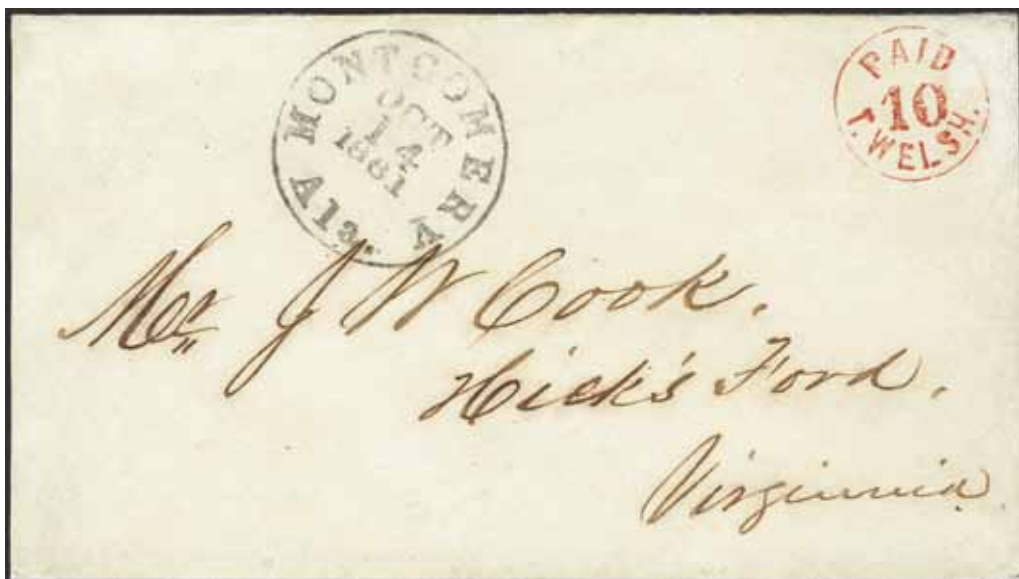 MONTGOMERY Ala.
OCT
14
1861
PAID
10
T. WELSH.
Mr. J W Cook.
Hick's Ford.
Virginnia